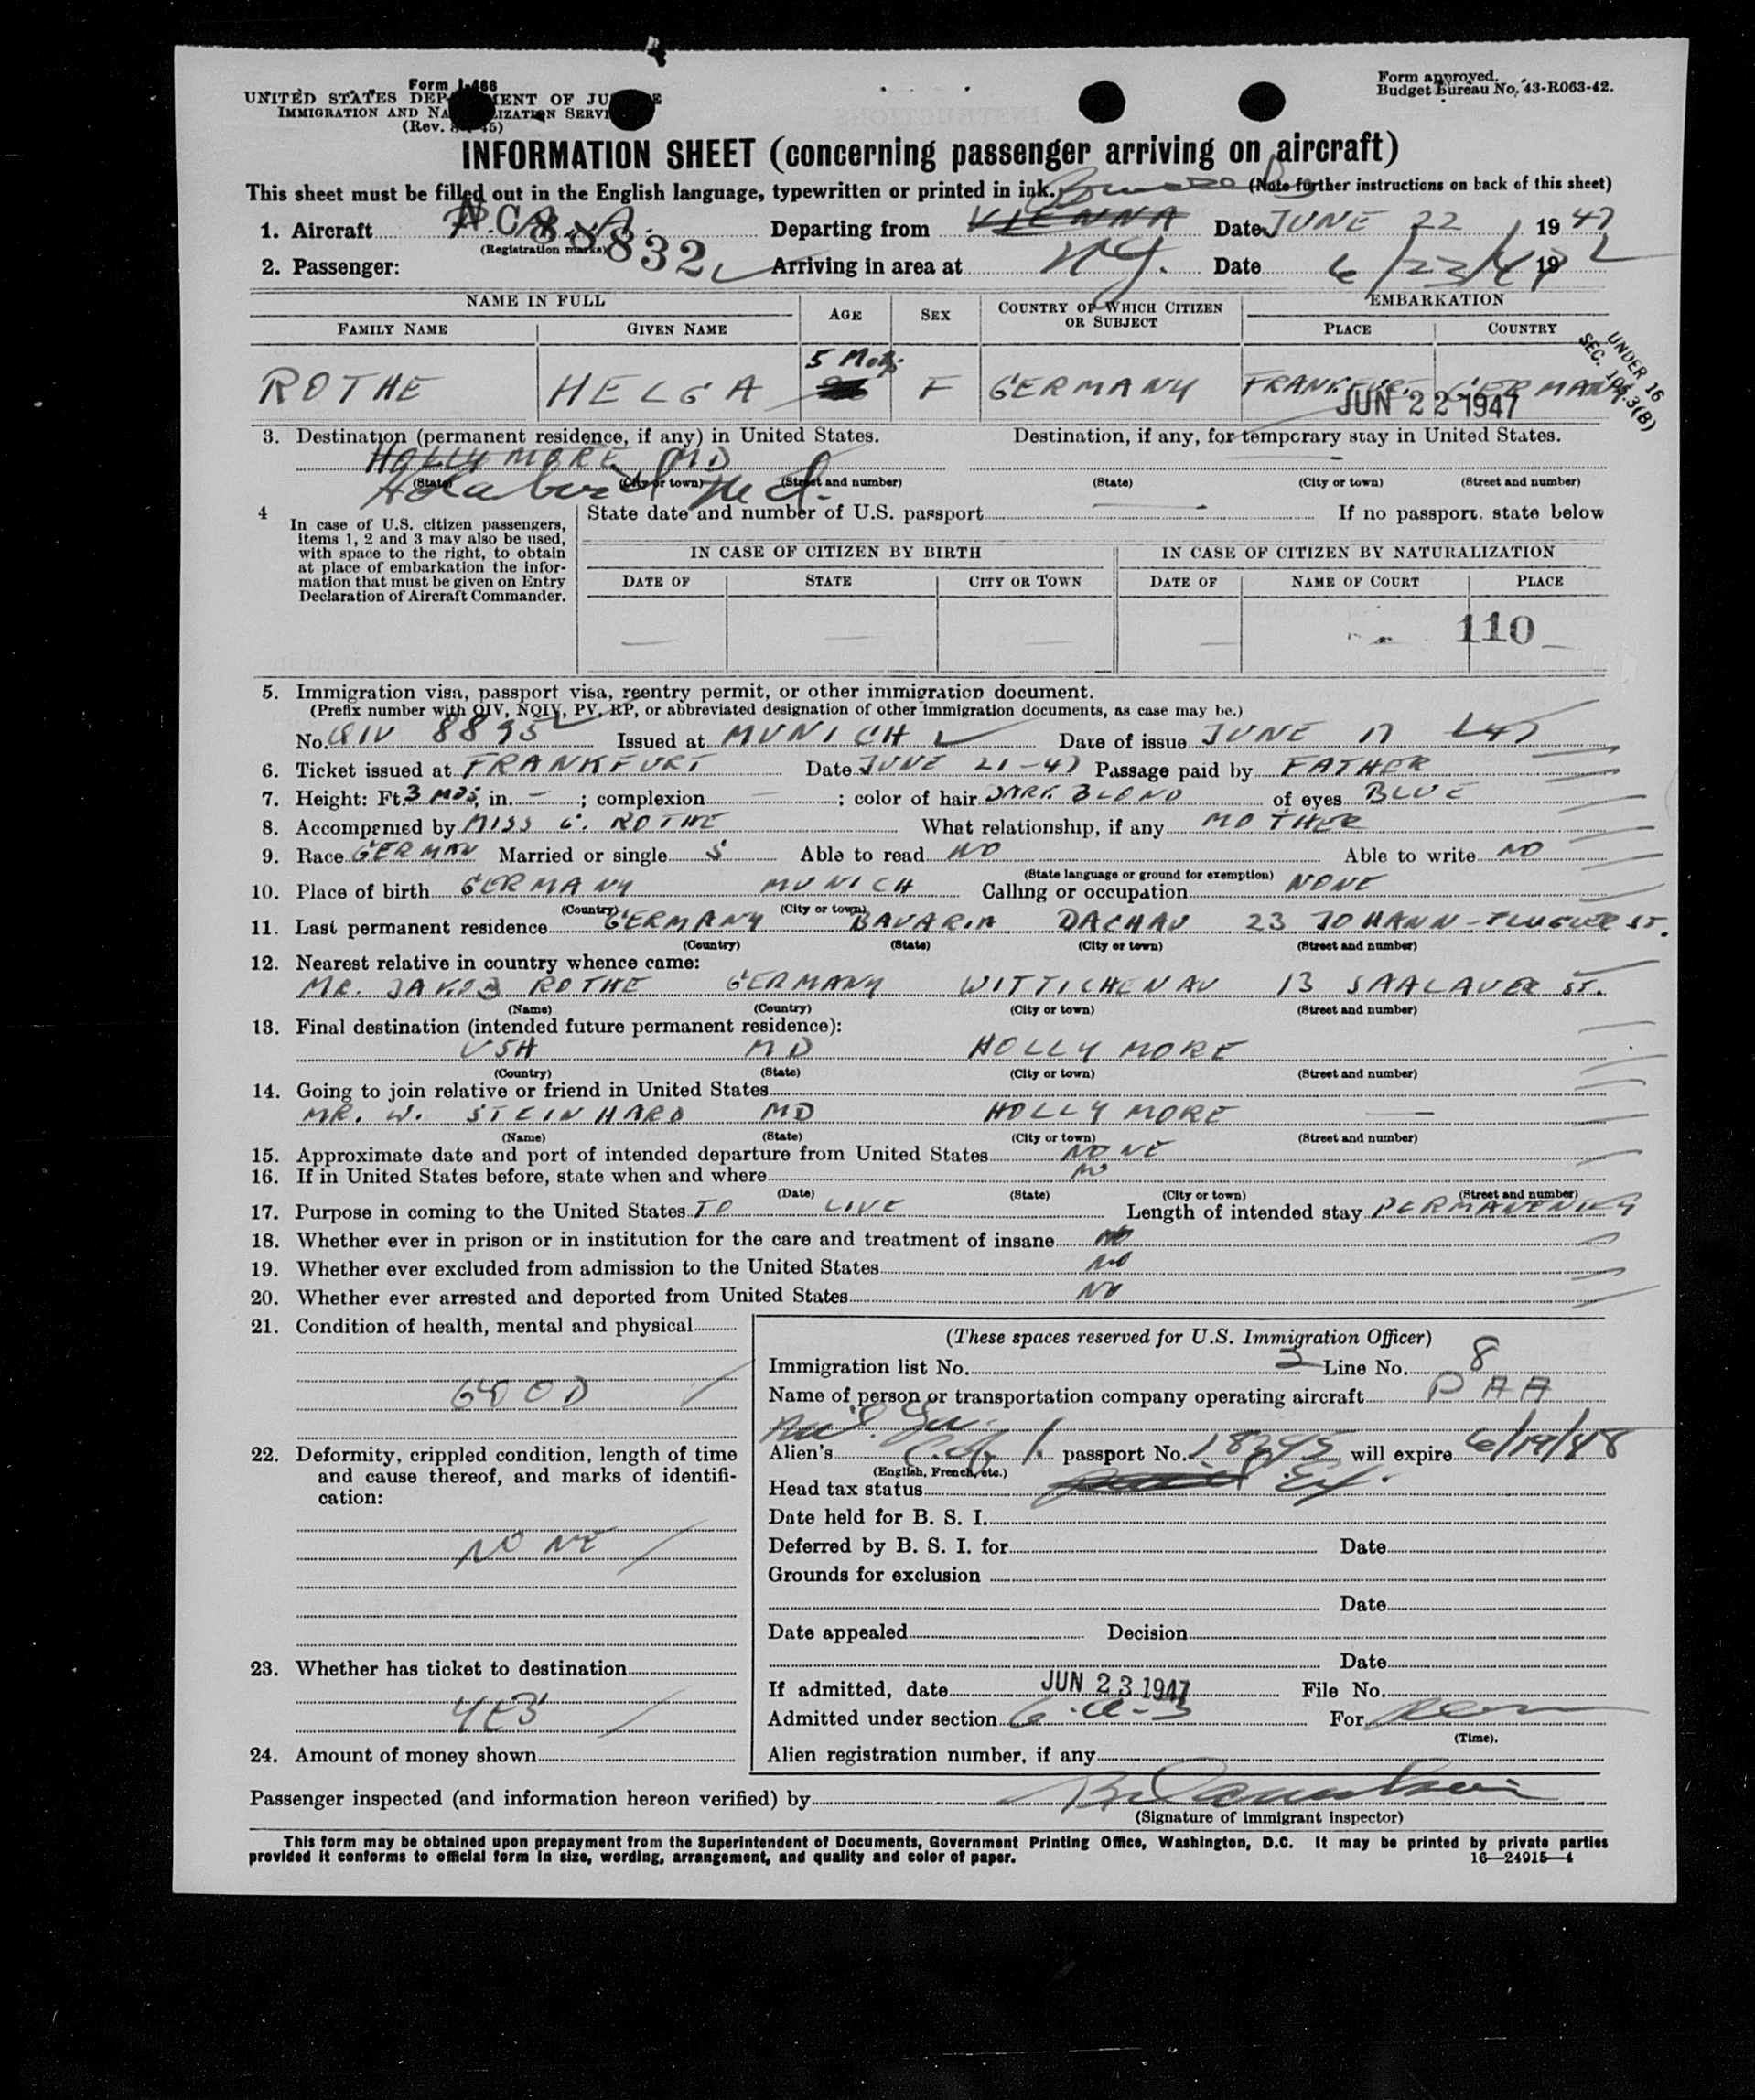 Form I-466
UNITED STATES DEPARTMENT OF JUSTICE
IMMIGRATION AND NATURALIZATION SERVICE
(Rev. 45)
Form approved.
Budget Bureau No. 43-R063-42.
INFORMATION SHEET (concerning passenger arriving on aircraft)
This sheet must be filled out in the English language, typewritten or printed in ink. (Note further instructions on back of this sheet)
1. Aircraft N.C. 88832 Departing from VIENNA Date JUNE 22 1947
(Registration marks)
2. Passenger: Arriving in area at NY. Date 6/23/47 19
NAME IN FULL AGE SEX COUNTRY OF WHICH CITIZEN OR SUBJECT EMBARKATION
FAMILY NAME GIVEN NAME PLACE COUNTRY
UNDER 16
SEC. 105.3(B)
5 Mos
ROTHE HELGA F GERMANY FRANKFURT GERMANY
JUN 22 1947
3. Destination (permanent residence, if any) in United States. Destination, if any, for temporary stay in United States.
HOLLYMORE MD
(State) (City or town) (Street and number) (State) (City or town) (Street and number)
Holabird Md.
4 In case of U.S. citizen passengers, items 1, 2 and 3 may also be used, with space to the right, to obtain at place of embarkation the information that must be given on Entry Declaration of Aircraft Commander.
State date and number of U.S. passport — If no passport, state below
IN CASE OF CITIZEN BY BIRTH IN CASE OF CITIZEN BY NATURALIZATION
DATE OF STATE CITY OR TOWN DATE OF NAME OF COURT PLACE
110
5. Immigration visa, passport visa, reentry permit, or other immigration document.
(Prefix number with QIV, NQIV, PV, RP, or abbreviated designation of other immigration documents, as case may be.)
No. QIV 8895 Issued at MUNICH Date of issue JUNE 17 47
6. Ticket issued at FRANKFURT Date JUNE 21-47 Passage paid by FATHER
7. Height: Ft. 3 MOS, in. - ; complexion — ; color of hair DARK BLOND of eyes BLUE
8. Accompanied by MISS G. ROTHE What relationship, if any MOTHER
9. Race GERMAN Married or single S Able to read NO Able to write NO
(State language or ground for exemption)
10. Place of birth GERMANY MUNICH Calling or occupation NONE
(Country) (City or town)
11. Last permanent residence GERMANY BAVARIA DACHAU 23 JOHANN-FLUGUER ST.
(Country) (State) (City or town) (Street and number)
12. Nearest relative in country whence came:
MR. JAKOB ROTHE GERMANY WITTICHENAU 13 SAALAUER ST.
(Name) (Country) (City or town) (Street and number)
13. Final destination (intended future permanent residence):
USA MD HOLLYMORE
(Country) (State) (City or town) (Street and number)
14. Going to join relative or friend in United States
MR. W. STEINHARD MD HOLLYMORE —
(Name) (State) (City or town) (Street and number)
15. Approximate date and port of intended departure from United States NONE
16. If in United States before, state when and where NO
(Date) (State) (City or town) (Street and number)
17. Purpose in coming to the United States TO LIVE Length of intended stay PERMANENTLY
18. Whether ever in prison or in institution for the care and treatment of insane NO
19. Whether ever excluded from admission to the United States NO
20. Whether ever arrested and deported from United States NO
21. Condition of health, mental and physical
GOOD
22. Deformity, crippled condition, length of time and cause thereof, and marks of identification:
NONE
23. Whether has ticket to destination
YES
24. Amount of money shown
(These spaces reserved for U.S. Immigration Officer)
Immigration list No. 2 Line No. 8
Name of person or transportation company operating aircraft PAA
Alien's passport No. will expire 6/19/48
(English, French, etc.)
Head tax status Ex.
Date held for B. S. I.
Deferred by B. S. I. for Date
Grounds for exclusion
Date
Date appealed Decision
Date
If admitted, date JUN 23 1947 File No.
Admitted under section 6-a-3 For
(Time).
Alien registration number, if any
Passenger inspected (and information hereon verified) by
(Signature of immigrant inspector)
This form may be obtained upon prepayment from the Superintendent of Documents, Government Printing Office, Washington, D.C. It may be printed by private parties
provided it conforms to official form in size, wording, arrangement, and quality and color of paper. 16—24915—4